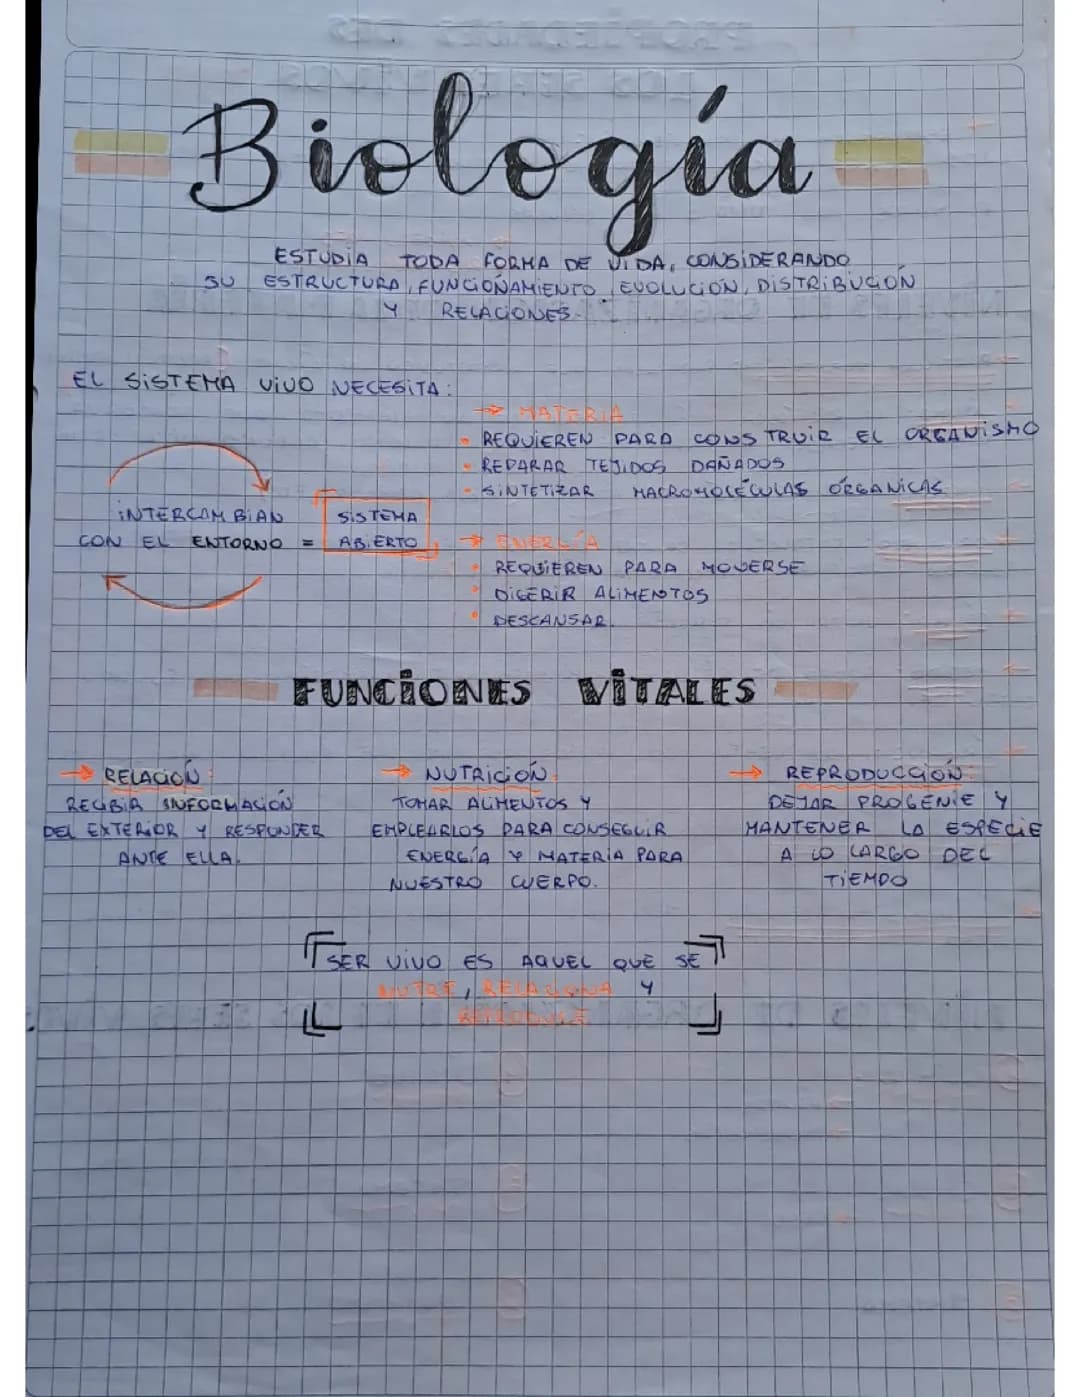 Biología
ESTUDIA TODA FORMA DE VIDA, CONSIDERANDO
SU ESTRUCTURA, FUNCIOÑAMIENTO, EVOLUCIÓN, DISTRIBUCIÓN
Y RELACIONES.
EL SISTEMA VIVO NECESITA:
→ MATERIA
• REQUIEREN PARA CONSTRUIR EL ORGANISMO
• REPARAR TEJIDOS DAÑADOS
• SINTETIZAR MACROMOLÉCULAS ÓRGANICAS
INTERCAMBIAN
CON EL ENTORNO = SISTEMA ABIERTO
→ ENERGÍA
• REQUIEREN PARA MOVERSE
• DIGERIR ALIMENTOS
• DESCANSAR.
FUNCIONES VITALES
→ RELACIÓN:
RECIBIR INFORMACIÓN
DEL EXTERIOR Y RESPONDER
ANTE ELLA.
→ NUTRICIÓN:
TOMAR ALIMENTOS Y
EMPLEARLOS PARA CONSEGUIR
ENERGÍA Y MATERIA PARA
NUESTRO CUERPO.
→ REPRODUCCIÓN:
DEJAR PROGENIE Y
MANTENER LA ESPECIE
A LO LARGO DEL
TIEMPO
SER VIVO ES AQUEL QUE SE
NUTRE, RELACIONA Y
REPRODUCE